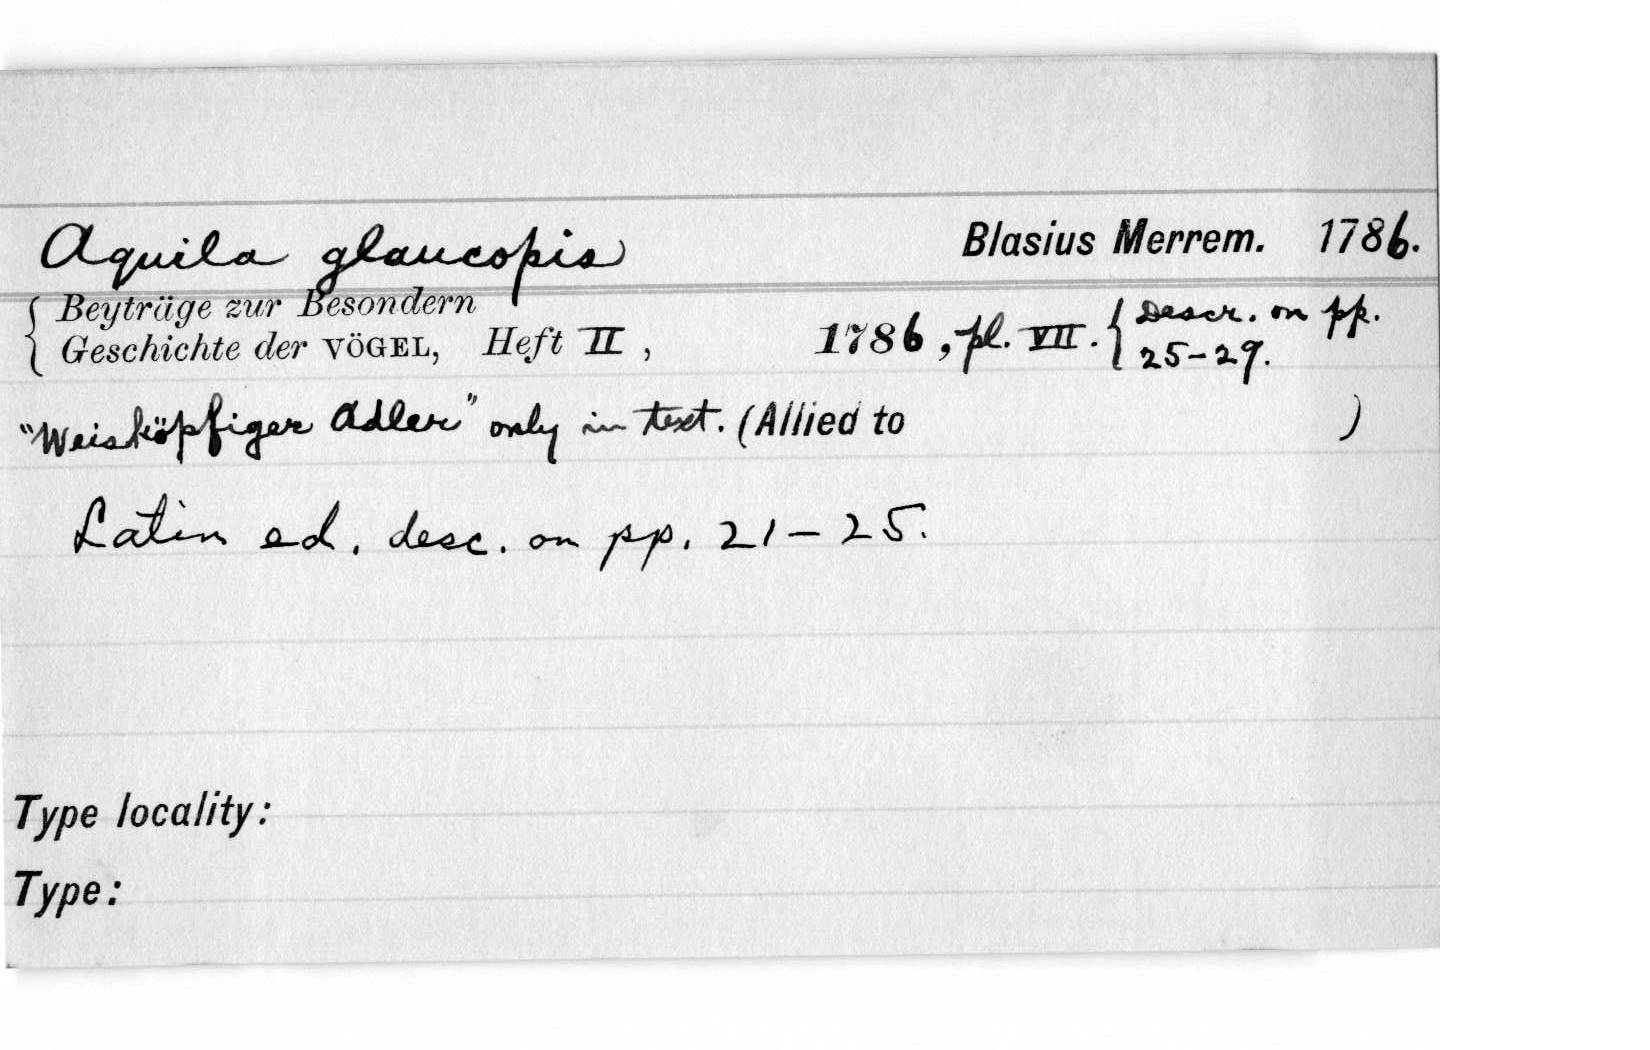 Aquila glaucopis Blasius Merrem. 1786.
{ Beyträge zur Besondern
Geschichte der VÖGEL, Heft II, 1786, pl. VII. { Descr. on pp. 25-29.
"Weisköpfiger Adler" only in text. (Allied to )
Latin ed. desc. on pp. 21-25.
Type locality:
Type: